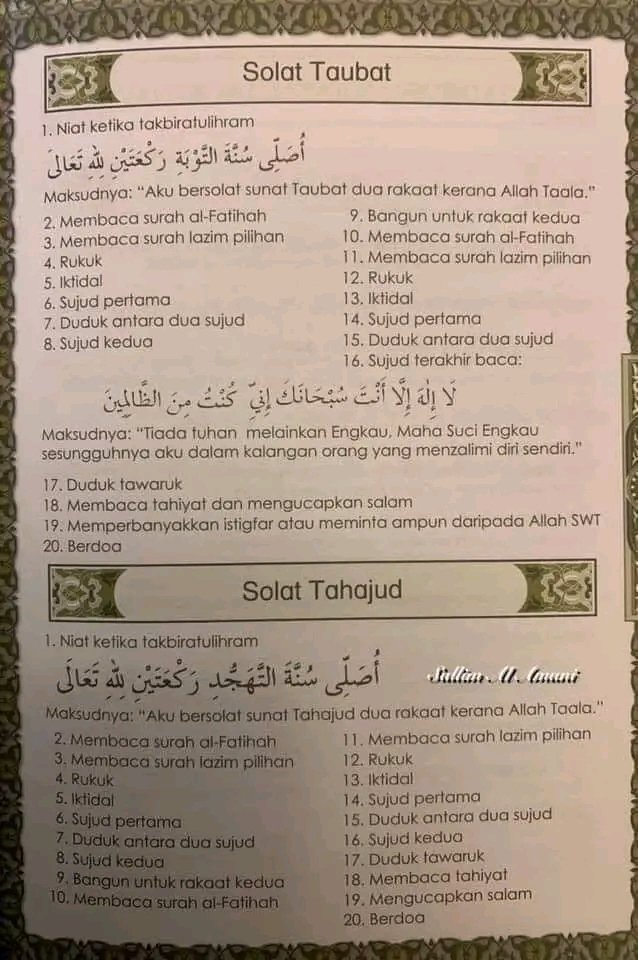 Solat Taubat
1. Niat ketika takbiratulihram
أُصَلِّى سُنَّةَ التَّوْبَةِ رَكْعَتَيْنِ لِلّٰهِ تَعَالَىٰ
Maksudnya: “Aku bersolat sunat Taubat dua rakaat kerana Allah Taala.”
2. Membaca surah al-Fatihah
3. Membaca surah lazim pilihan
4. Rukuk
5. Iktidal
6. Sujud pertama
7. Duduk antara dua sujud
8. Sujud kedua
9. Bangun untuk rakaat kedua
10. Membaca surah al-Fatihah
11. Membaca surah lazim pilihan
12. Rukuk
13. Iktidal
14. Sujud pertama
15. Duduk antara dua sujud
16. Sujud terakhir baca:
لَا إِلٰهَ إِلَّا أَنْتَ سُبْحَانَكَ إِنِّيْ كُنْتُ مِنَ الظَّالِمِينَ
Maksudnya: “Tiada tuhan melainkan Engkau, Maha Suci Engkau
sesungguhnya aku dalam kalangan orang yang menzalimi diri sendiri.”
17. Duduk tawaruk
18. Membaca tahiyat dan mengucapkan salam
19. Memperbanyakkan istigfar atau meminta ampun daripada Allah SWT
20. Berdoa
Solat Tahajud
1. Niat ketika takbiratulihram
أُصَلِّى سُنَّةَ التَّهَجُّدِ رَكْعَتَيْنِ لِلّٰهِ تَعَالَى
Maksudnya: “Aku bersolat sunat Tahajud dua rakaat kerana Allah Taala.”
2. Membaca surah al-Fatihah
3. Membaca surah lazim pilihan
4. Rukuk
5. Iktidal
6. Sujud pertama
7. Duduk antara dua sujud
8. Sujud kedua
9. Bangun untuk rakaat kedua
10. Membaca surah al-Fatihah
11. Membaca surah lazim pilihan
12. Rukuk
13. Iktidal
14. Sujud pertama
15. Duduk antara dua sujud
16. Sujud kedua
17. Duduk tawaruk
18. Membaca tahiyat
19. Mengucapkan salam
20. Berdoa